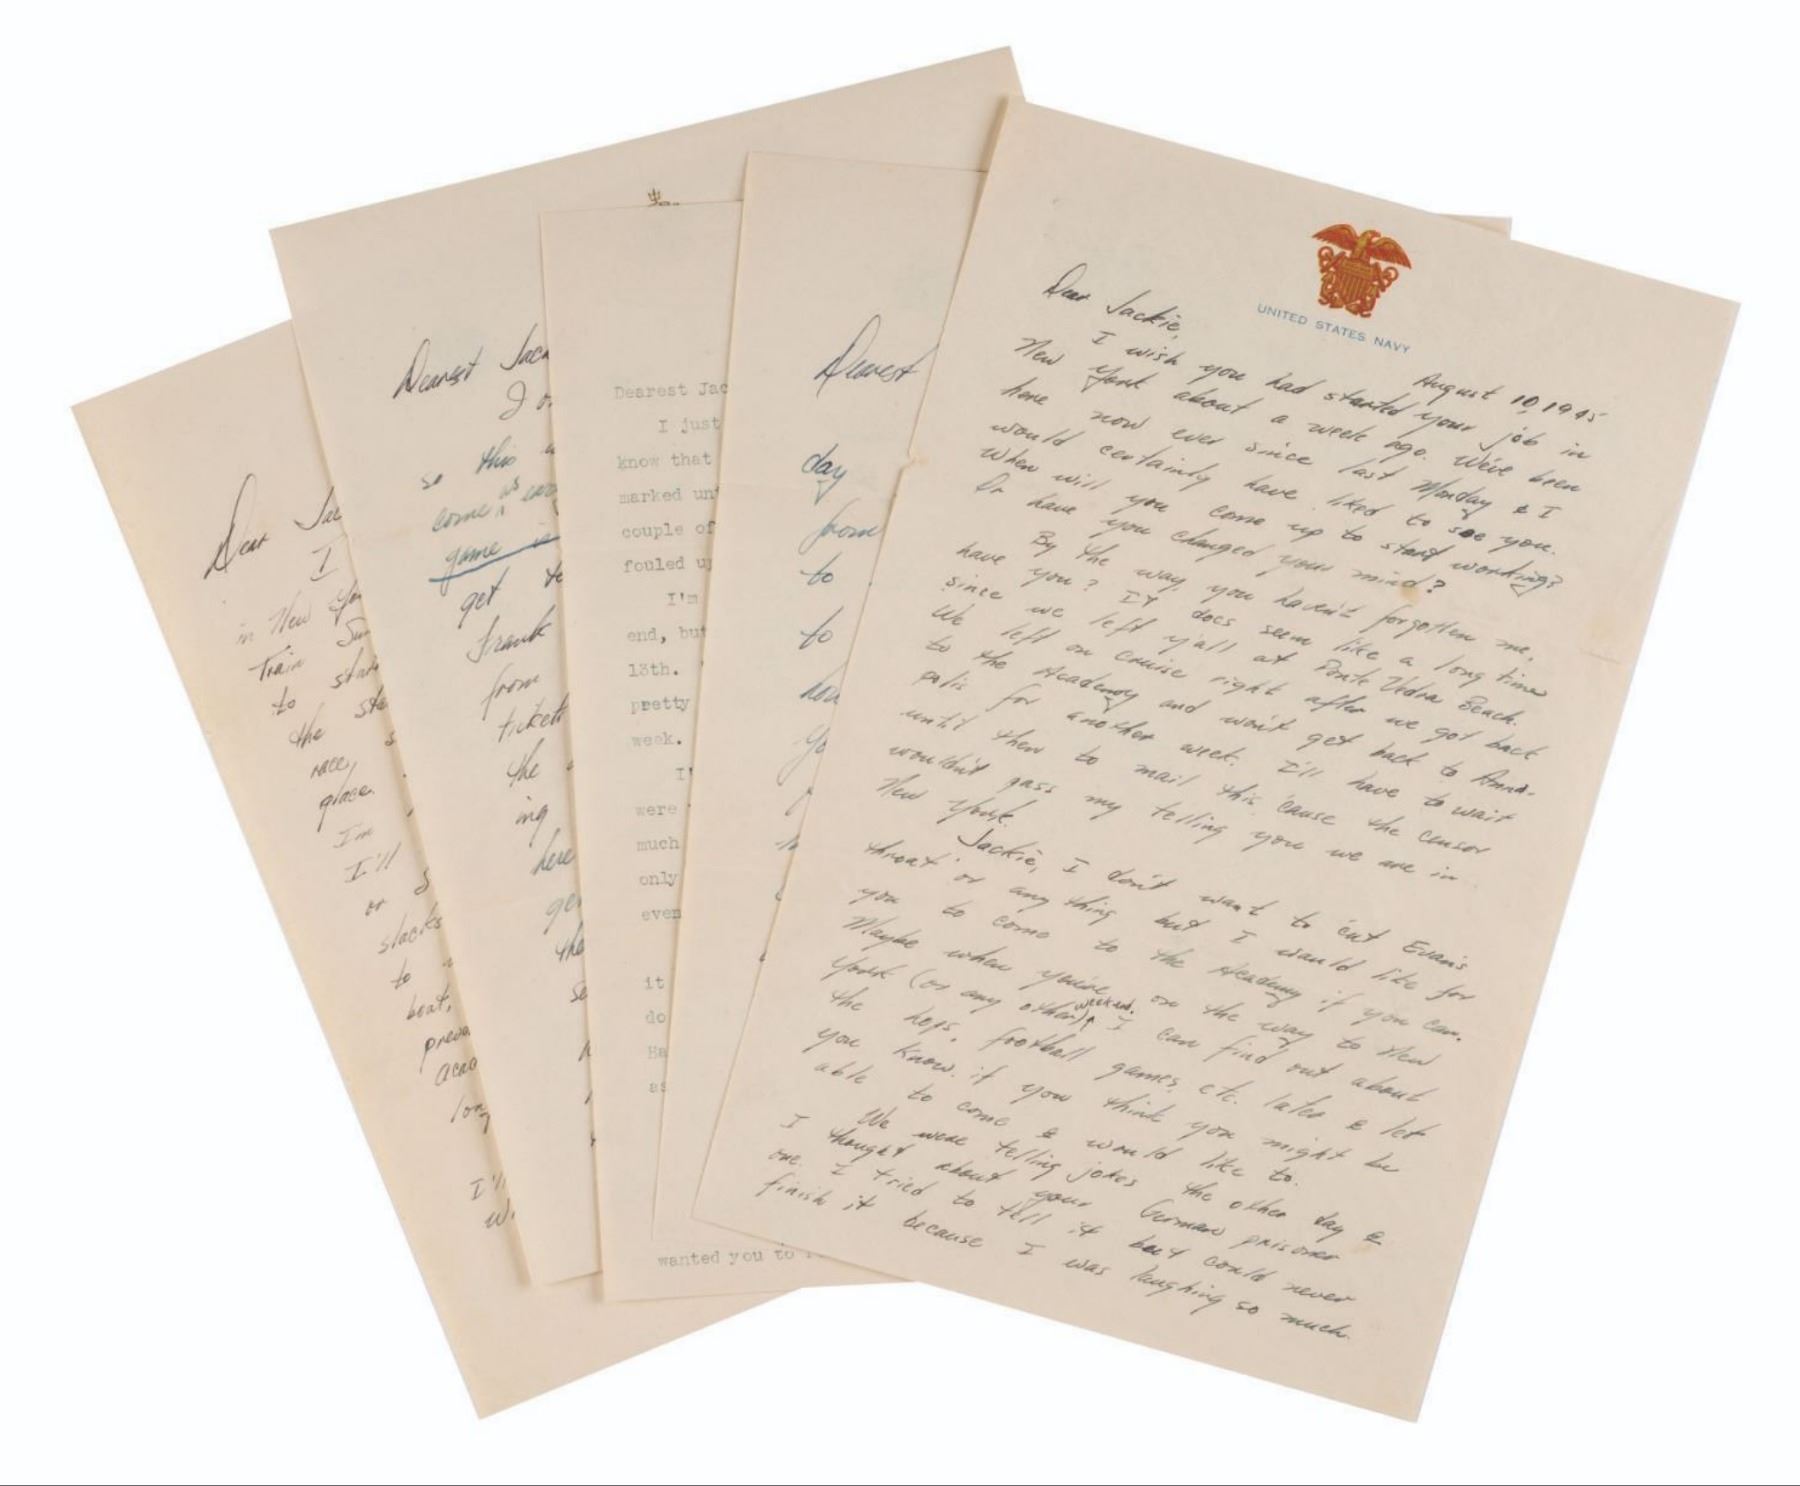 Dear Jac
I
in New Yor
Train Sun
to star
the sta
race,
place.
I'm
I'll
or S
slacks
to
boat,
prev
acad
long
I'll
w.
Dearest Jack
I o
so this w
come, as
game is
get to
Frank
from
tickets
the
ing
here
ge
the
se
Dearest Jac
I just
know that
marked un
couple of
fouled up
I'm
end, but
13th.
pretty
week.
I'
were
much
only
even
it
do
Ha
as
wanted you to
Dearest
day
from
to
to
hou
Yo
UNITED STATES NAVY
August 10, 1945
Dear Jackie,
I wish you had started your job in
New York about a week ago. We've been
here now ever since last Monday & I
would certainly have liked to see you.
When will you come up to start working?
Or have you changed your mind?
By the way, you haven't forgotten me,
have you? It does seem like a long time
since we left y'all at Ponte Vedra Beach.
We left on cruise right after we got back
to the Academy and won't get back to Anna-
polis for another week. I'll have to wait
until then to mail this 'cause the censor
wouldn't pass my telling you we are in
New York.
Jackie, I don't want to cut Evan's
throat or any thing but I would like for
you to come to the Academy if you can.
Maybe when you're on the way to New
York (or any other) weekend. I can find out about
the hops, football games, etc. later & let
you know. if you think you might be
able to come & would like to.
We were telling jokes the other day &
I thought about your German prisoner
one. I tried to tell it but could never
finish it because I was laughing so much.